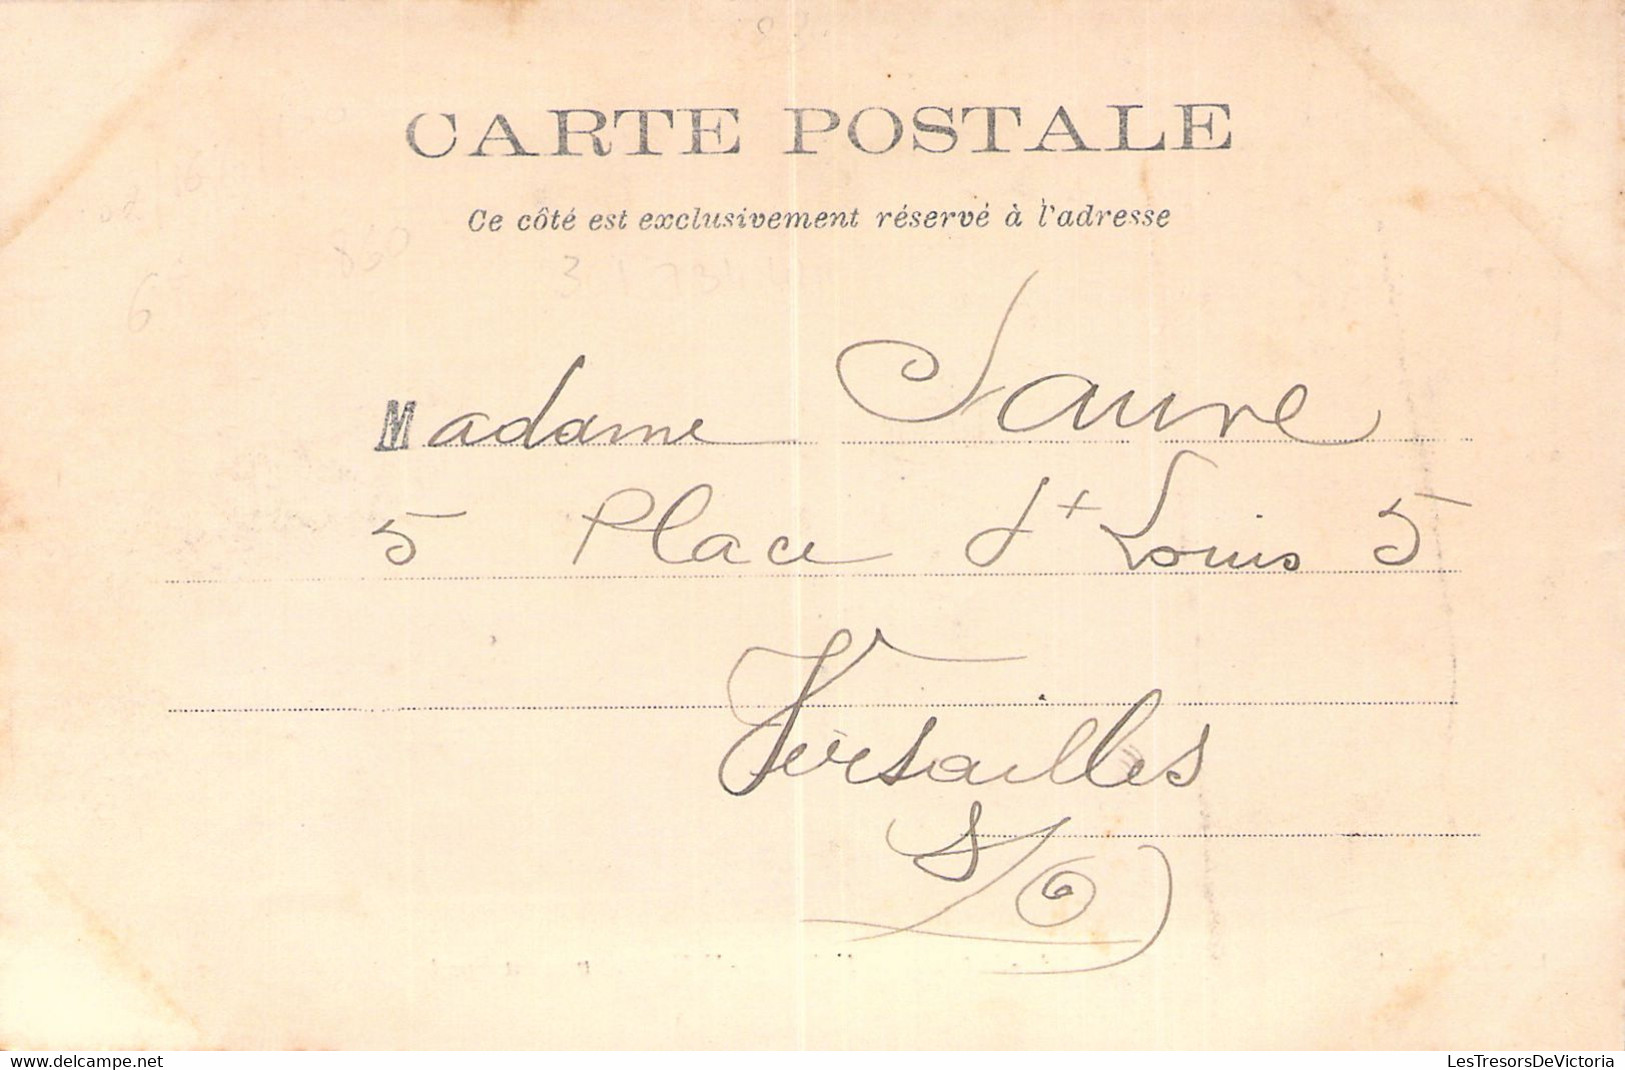 CARTE POSTALE
Ce côté est exclusivement réservé à l'adresse
Madame Saure
5 Place St Louis 5
Versailles
S/O
delcampe.net
LesTresorsDeVictoria